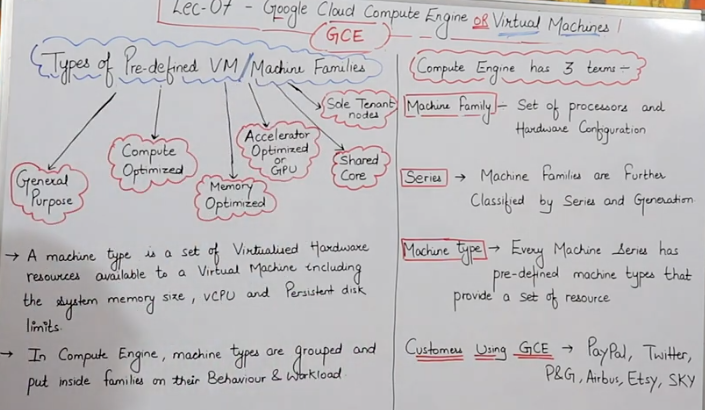 Lec-07 - Google Cloud Compute Engine OR Virtual Machines
GCE
Types of Pre-defined VM/Machine Families
General
Purpose
Compute
Optimized
Memory
Optimized
Accelerator
Optimized
or
GPU
Shared
Core
Sole Tenant
nodes
→ A machine type is a set of Virtualised Hardware
resources available to a Virtual Machine including
the system memory size, vCPU and Persistent disk
limits.
→ In Compute Engine, machine types are grouped and
put inside families on their Behaviour & Workload.
Compute Engine has 3 terms -
Machine Family - Set of processors and
Hardware Configuration
Series → Machine Families are Further
Classified by Series and Generation
Machine type → Every Machine Series has
pre-defined machine types that
provide a set of resource
Customers Using GCE → PayPal, Twitter,
P&G, Airbus, Etsy, SKY